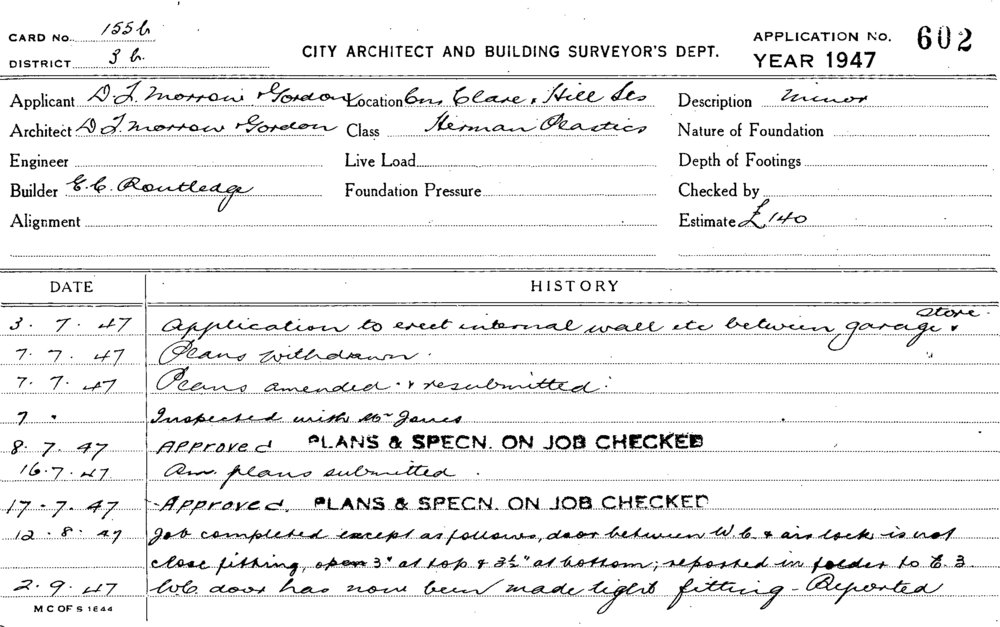 CARD No. 1556
DISTRICT 3 b.
CITY ARCHITECT AND BUILDING SURVEYOR'S DEPT.
APPLICATION No. 602
YEAR 1947
Applicant D. T. Morrow & Gordon Location Cnr Clare & Hill Sts Description Minor
Architect D T. Morrow & Gordon Class Herman Plastics Nature of Foundation
Engineer Live Load Depth of Footings
Builder E.C. Routledge Foundation Pressure Checked by
Alignment Estimate £140
DATE HISTORY
3. 7. 47 Application to erect internal wall etc between garage & store.
7. 7. 47 Plans withdrawn.
7. 7. 47 Plans amended & resubmitted.
7 " Inspected with Mr Jones
8. 7. 47 Approved PLANS & SPECN. ON JOB CHECKED
16. 7. 47 Am. plans submitted.
17. 7. 47 Approved. PLANS & SPECN. ON JOB CHECKED
12. 8. 47 Job completed except as follows, door between W.C. & air lock is not
close fitting, open 3" at top & 3½" at bottom; reported in folder to E.3.
2. 9. 47 W.C. door has now been made tight fitting - Reported
M C OF S 1644